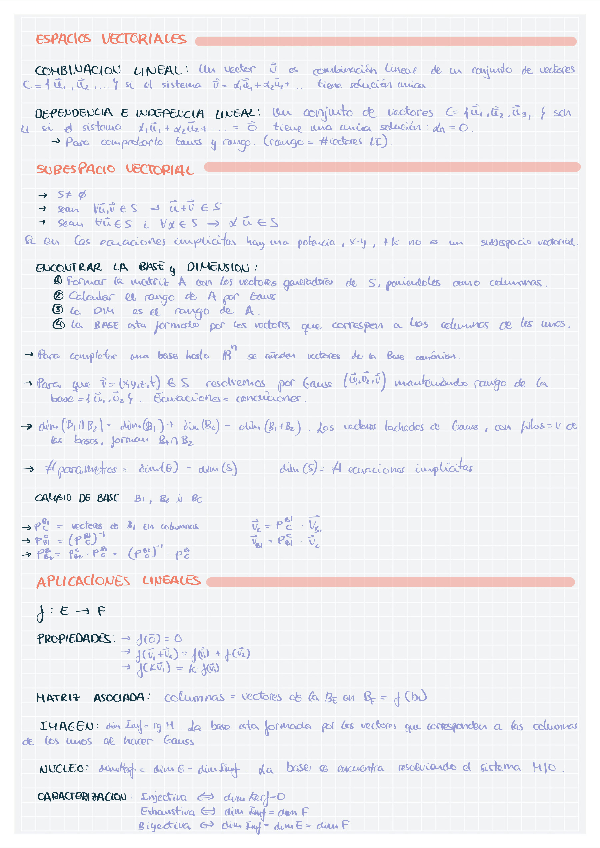 ESPACIOS VECTORIALES
COMBINACION LINEAL: Un vector v⃗ es combinación lineal de un conjunto de vectores
C = { u⃗₁, u⃗₂ ... } si el sistema v⃗ = α₁u⃗₁ + α₂u⃗₂ + ... tiene solución única
DEPENDENCIA E INDEPENCIA LINEAL: Un conjunto de vectores C = { u⃗₁, u⃗₂, u⃗₃, } son
LI si el sistema α₁u⃗₁ + α₂u⃗₂ + ... = 0⃗ tiene una única solución: αₙ = 0.
→ Para comprobarlo Gauss y rango. (rango = #vectores LI)
SUBESPACIO VECTORIAL
→ S ≠ ∅
→ sean ∀u⃗,v⃗ ∈ S → u⃗ + v⃗ ∈ S
→ sean ∀u⃗ ∈ S i ∀α ∈ S → α u⃗ ∈ S
Si en las ecuaciones implícitas hay una potencia, x·y, +k no es un subespacio vectorial.
ENCONTRAR LA BASE y DIMENSION:
① Formar la matriz A con los vectores generadores de S, poniendolos como columnas.
② Calcular el rango de A por Gauss
③ La DIM es el rango de A.
④ La BASE esta formada por los vectores que correspon a las columnas de los unos.
→ Para completar una base hasta ℝⁿ se añaden vectores de la Base canónica.
→ Para que v⃗ = (x,y,z,t) ∈ S resolvemos por Gauss (u⃗₁,u⃗₂,v⃗) manteniendo rango de la
base = { u⃗₁, u⃗₂ }. Ecuaciones = condiciones.
→ dim(B₁∩B₂) = dim(B₁) + dim(B₂) - dim(B₁+B₂). Los vectores tachados de Gauss, con filas = v de
las bases, forman B₁∩B₂
→ #parametros = dim(E) - dim(S) dim(S) = # ecuaciones implícitas
CAMBIO DE BASE B₁, B₂ i Bc
→ = vectores de B₁ en columnas
APLICACIONES LINEALES
f : E → F
PROPIEDADES: → f(0⃗) = 0
→ f(v⃗₁+v⃗₂) = f(v⃗₁) + f(v⃗₂)
→ f(kv⃗₁) = k f(v⃗₁)
MATRIZ ASOCIADA: columnas = vectores de la B_E en B_F = f(b₁)
IMAGEN: dim Imf = rg M La base esta formada por los vectores que corresponden a las columnas
de los unos al hacer Gauss
NUCLEO: = dim E - dim Imf La base se encuentra resolviendo el sistema M|0.
CARACTERIZACION: Injectiva ⟺ dim Kerf = 0
Exhaustiva ⟺ dim Imf = dim F
Bijectiva ⟺ dim Imf = dim E = dim F